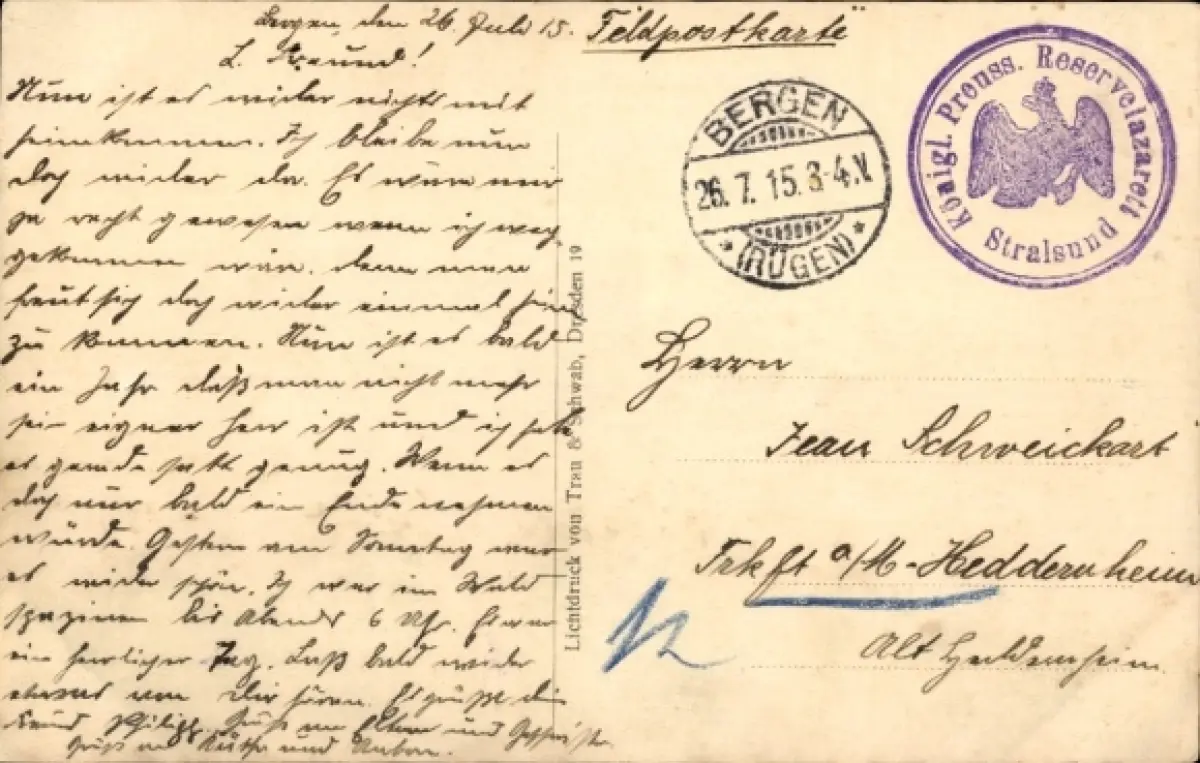 Bergen, den 26. Juli 15.
L. Freund!
Nun ist es wieder nichts mit
heimkommen. Ich bleibe nun
doch wieder da. Es wäre mir
ja recht gewesen wenn ich weg
gekommen wäre. denn man
freut sich doch wieder einmal heim
zu kommen. Nun ist es bald
ein Jahr daß man nicht mehr
sein eigner Herr ist und ich habe
es gerade satt genug. Wenn es
doch nur bald ein Ende nehmen
würde. Gestern am Sonntag war
es wieder schön. Ich war im Wald
spazieren bis Abends 6 Uhr. Es war
ein herrlicher Tag. Laß bald wieder
etwas von Dir hören. Es grüßt dein
Freund Philipp. Gruß an Eltern und Geschwister
Gruß an und
Feldpostkarte
BERGEN
26. 7. 15. 3-4.V.
* (RÜGEN) *
Königl. Preuss. Reservelazarett
Stralsund
Lichtdruck von Trau & Schwab, Dresden 19
Herrn
Jean Schweickart
Frkft a/M-Heddernheim
Alt Heddernheim